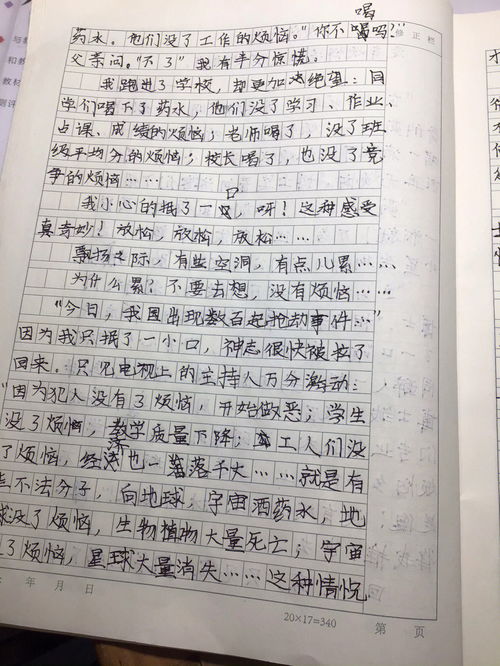 喝
药水。他们没了工作的烦恼。”你不喝吗？”
修正栏
父亲问。“不了”我有半分惊慌。
我跑进了学校，却更加绝望：同
学们喝下了药水，他们没了学习、作业、
点课、成绩的烦恼；老师喝了，没了班
级平均分的烦恼；校长喝了，也没了竞
争的烦恼……
我小心的抿了一口，呀！这种感受
真奇妙？放松，放松，放松……
飘扬之际，有些空洞，有点儿累……
为什么累？不要去想，没有烦恼……
“今日，我国出现数百起抢劫事件…”
因为我只抿了一小口，神志很快被拉了
回来。只见电视上的主持人万分激动：
“因为犯人没有了烦恼，开始做恶；学生
没了烦恼，教学质量下降；工人们没
了烦恼，经济也一落千丈……就是有
不法分子，向地球，宇宙洒药水，地
球没了烦恼，生物植物大量死亡；宇宙
了烦恼，星球大量消失……这种情况
年 月 日
20×17=340
第 页